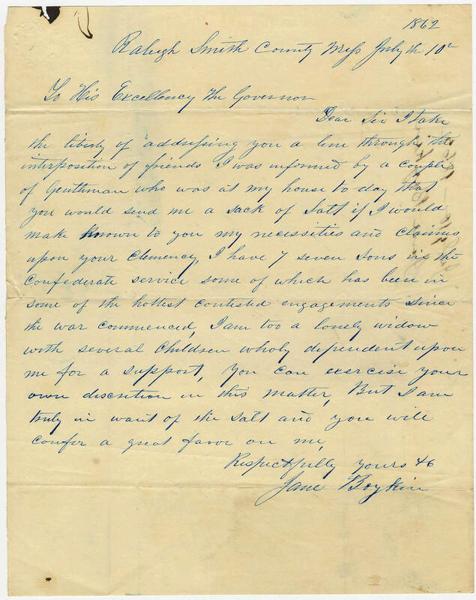 1862
Raleigh Smith County Miss July th 10th
To His Excellency the Governor
Dear Sir I take
the liberty of addressing you a line through the
interposition of friends I was informed by a couple
of Gentleman who was at my house to day that
you would send me a sack of Salt if I would
make known to you my necessities and claims
upon your Clemency, I have 7 seven Sons in the
Confederate service some of which has been in
some of the hottest contested engagements since
the war commenced, I am too a lonely widow
with several Children wholy dependent upon
me for a support, You can exercise your
own discretion in this matter But I am
truly in want of the salt and you will
confer a great favor on me,
Respectfully yours &c
Jane Boykin